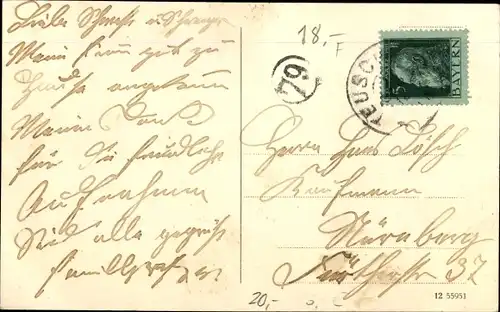 Liebe Schwester u. Schwager
Meine bin gut zu
Hause angekommen
Meinen Dank
für die freundliche
Aufnahme
Seid alle gegrüßt
18,- F
79
TEUSCH
5
BAYERN
Herrn Hans Lösch
Kaufmann
Nürnberg
Fürtherstr 37
20,-
12 55951